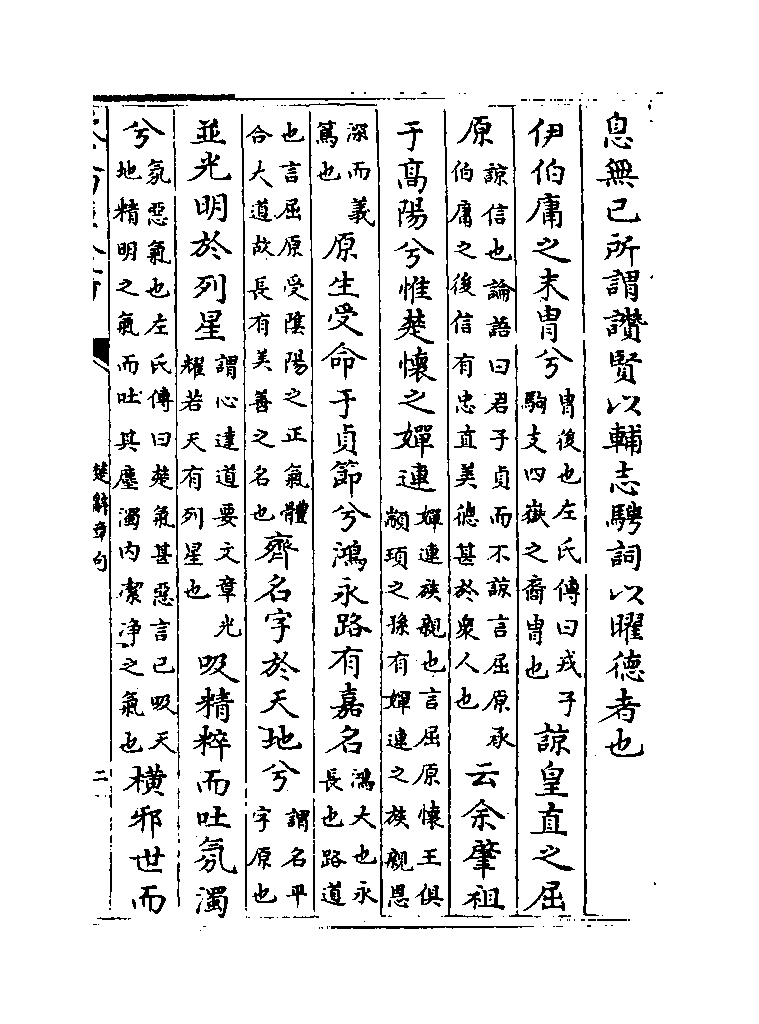 息無已所謂讃賢以輔志騁詞以曜德者也
伊伯庸之末胄兮胄後也左氏傳曰戎子駒支四嶽之裔胄也諒皇直之屈
原諒信也論語曰君子貞而不諒言屈原承伯庸之後信有忠直美徳甚於衆人也云余肇祖
于髙陽兮惟楚懷之嬋連嬋連族親也言屈原懷王俱顓頊之孫有嬋連之族親恩
深而義篤也原生受命于貞節兮鴻永路有嘉名鴻大也永長也路道
也言屈原受隂陽之正氣體合大道故長有美善之名也齊名字於天地兮謂名平字原也
並光明於列星謂心達道要文章光耀若天有列星也吸精粹而吐氛濁
兮氛惡氣也左氏傳曰楚氣甚惡言已吸天地精明之氣而吐其塵濁内潔浄之氣也橫邪世而
楚辭章句
二